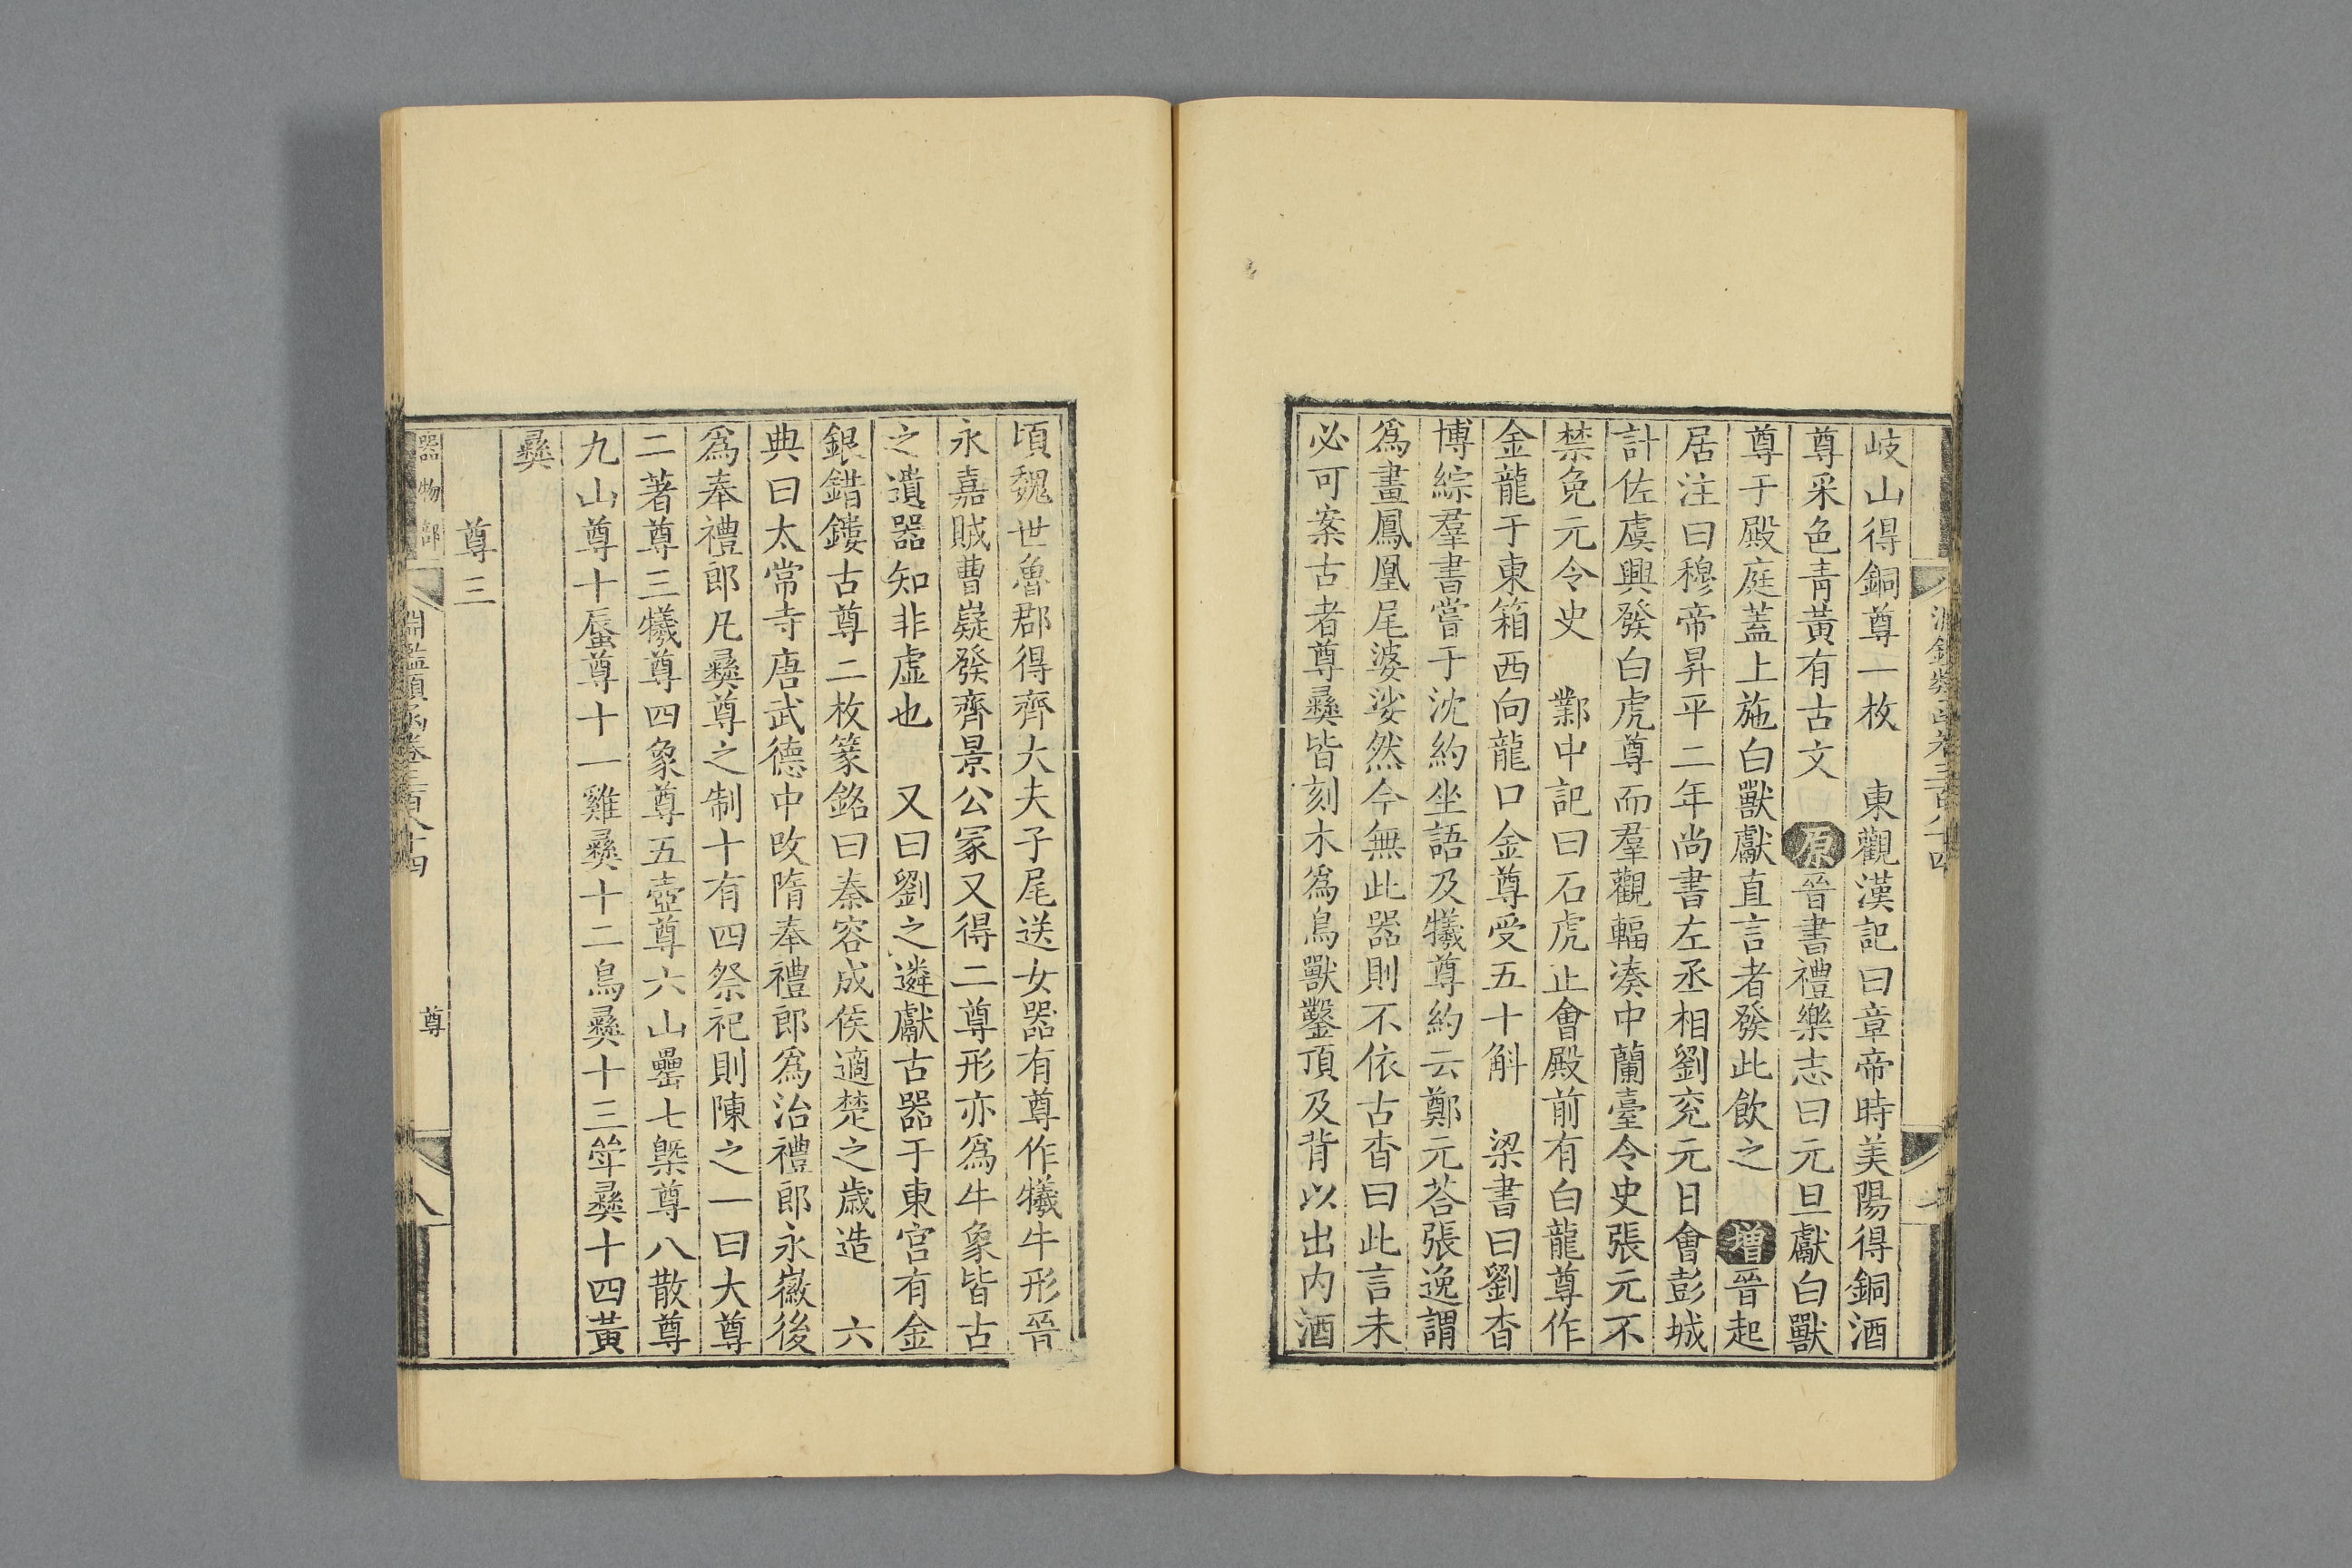 岐山得銅尊一枚　東觀漢記曰章帝時美陽得銅酒
尊采色青黃有古文　原晉書禮樂志曰元旦獻白獸
尊于殿庭蓋上施白獸獻直言者發此飲之　增晉起
居注曰穆帝昇平二年尚書左丞相劉兖元日會彭城
計佐虞興發白虎尊而羣觀輻湊中蘭臺令史張元不
禁免元令史　鄴中記曰石虎止會殿前有白龍尊作
金龍于東箱西向龍口金尊受五十斛　梁書曰劉杳
博綜羣書嘗于沈約坐語及犧尊約云鄭元荅張逸謂
爲畫鳳凰尾婆娑然今無此器則不依古杳曰此言未
必可案古者尊彝皆刻木爲鳥獸鑿頂及背以出内酒
頃魏世魯郡得齊大夫子尾送女器有尊作犧牛形晉
永嘉賊曹嶷發齊景公冢又得二尊形亦爲牛象皆古
之遺器知非虛也　又曰劉之遴獻古器于東宮有金
銀錯鏤古尊二枚篆銘曰秦容成侯適楚之歲造　六
典曰太常寺唐武德中改隋奉禮郎爲治禮郎永徽後
爲奉禮郎凡彝尊之制十有四祭祀則陳之一曰大尊
二著尊三犧尊四象尊五壺尊六山罍七槩尊八散尊
九山尊十蜃尊十一雞彝十二鳥彝十三斝彝十四黃
彝
尊三
器物部　淵鑑類函卷三百八十四　尊　八